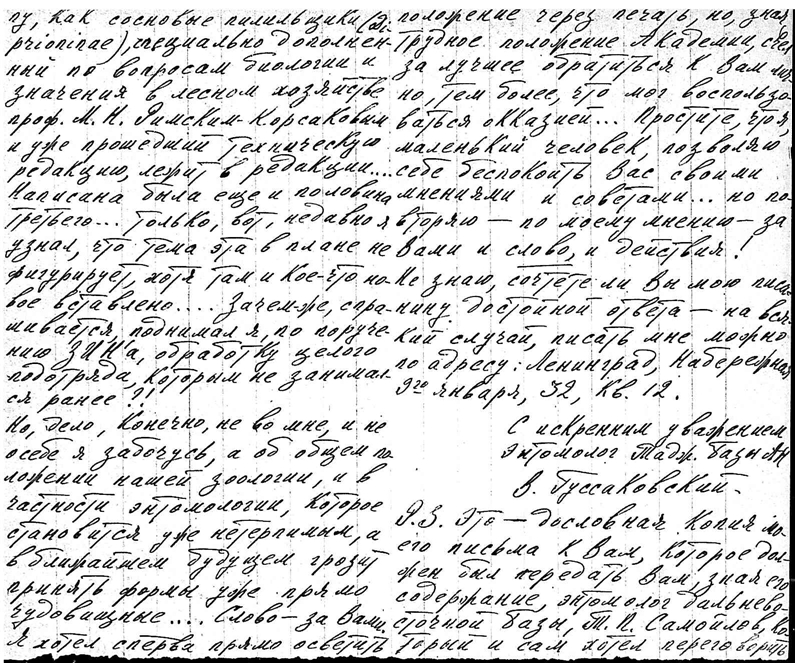 пу, как сосновые пилильщики (Di-
prioninae), специально дополнен-
ный по вопросам биологии и
значения в лесном хозяйстве
проф. М. Н. Римским-Корсаковым
и уже прошедший техническую
редакцию, лежит в редакции....
Написана была еще и половина
третьего... только, вот, недавно я
узнал, что тема эта в плане не
фигурирует, хотя там и кое-что но-
вое вставлено.... Зачем-же, спра-
шивается, поднимал я, по поруче-
нию ЗИН'а, обработку целого
подотряда, которым не занимал-
ся ранее?!
Но, дело, конечно, не во мне, и не
о себе я забочусь, а об общем по-
ложении нашей зоологии, и в
частности энтомологии, которое
становится уже нетерпимым, а
в ближайшем будущем грозит
принять формы уже прямо
чудовищные.... Слово — за Вами.
Я хотел сперва прямо осветить
положение через печать, но, зная
трудное положение Академии, счел
за лучшее обратиться к Вам лич-
но, тем более, что мог воспользо-
ваться окказией... Простите, что я,
маленький человек, позволяю
себе беспокоить Вас своими
мнениями и советами... но по-
вторяю — по моему мнению — за
Вами и слово, и действия!
Не знаю, сочтете ли Вы мою писа-
нину достойной ответа — на вся-
кий случай, писать мне можно
по адресу: Ленинград, Набережная
9го января, 32, кв. 12.
С искренним уважением
Энтомолог Тадж. базы АН
В. Гуссаковский.
P.S. Это — дословная копия мо-
его письма к Вам, которое дол-
жен был передать Вам, зная его
содержание, энтомолог дальнево-
сточной базы, Т. П. Самойлов, ко-
торый и сам хотел переговорить